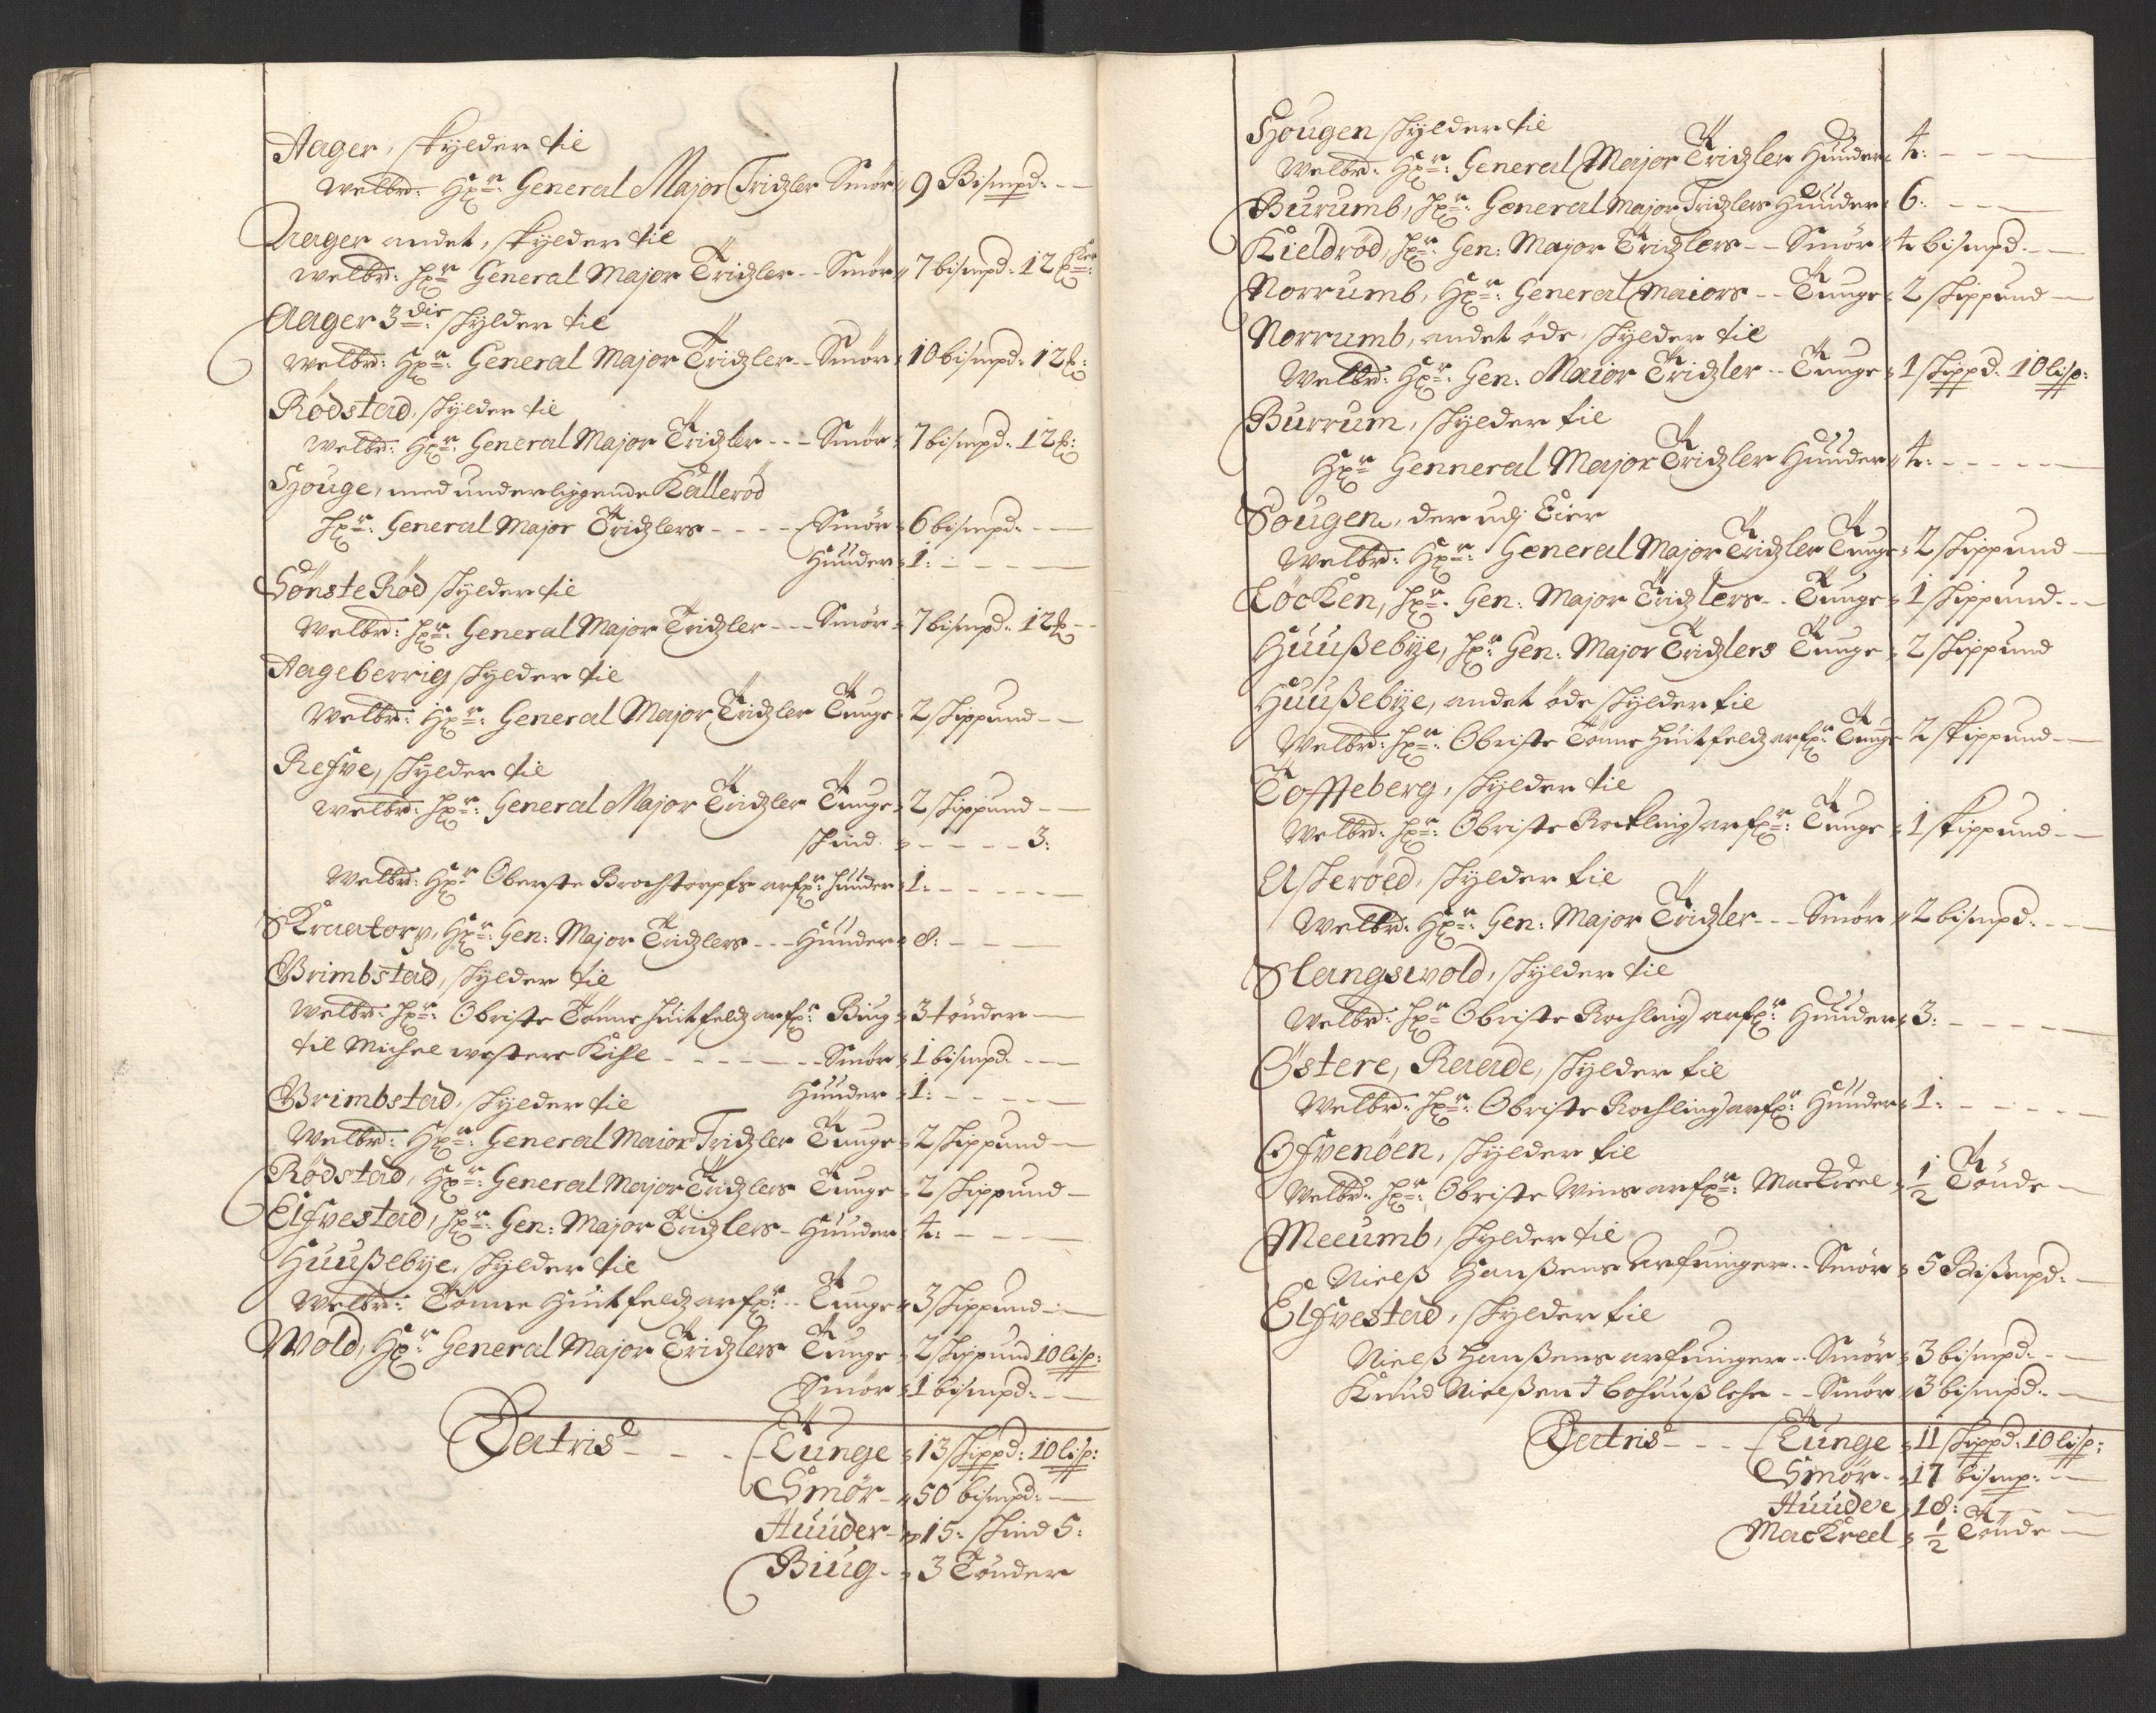 Aager, skylder til
Welbr: Hr: General Major Tridzler Smör 9 Bismpd:
Aager andet, skylder til
Welbr: Hr General Major Tridzler Smör 7 bismpd: 12
Aager 3die skylder til
Welbr: Hr: General Major Tridzler Smör 10 bismpd: 12
Rödstad, skylder til
Welbr: Hr: General Major Tridzler Smör 7 bismpd: 12
Houge, med underliggende Kallerod
Hr: General Major Tridzlers Smör 6 bismpd:
Huuder 1:
Sönste Röd skylder til
Welbr: Hr: General Major Tridzler Smör 7 bismpd: 12
Aageberrig skylder til
Welbr: Hr: General Major Tridzler Tunge 2 skippund
Refve, skylder til
Welbr: Hr: General Major Tridzler Tunge 2 skippund
skind 3:
Welbr: Hr Oberste Brochtorpfs arfr: huuder 1:
Skraatorp, Hr: Gen: Major Tridzlers Huuder 8:
Brimbstad, skylder til
Welbr: Hr: Obriste Tönne Huitfeldz arfr: Biug 3 tönder
til Michel westere Kihl Smör 1 bismpd:
Huuder 1:
Brimbstad, skylder til
Welbr: Hr: General Maior Tridzler Tunge 2 skippund
Rödstad, Hr: General Major Tridzlers Tunge 2 skippund
Elfvestad, Hr: Gen: Major Tridzlers Huuder 4:
Huußebye, skylder til
Welbr: Tönne Huitfeldz arfr: Tunge 3 skippund
Wold, Hr General Major Tridzlers Tunge 2 skippund 10 lisp:
Smör 1 bismpd:
Latris Tunge 13 skippd: 10 lisp:
Smör 50 bismpd:
Huuder 15: skind 5:
Biug 3 Tönder
Hougen skylder til
Welbr: Hr: General Major Tridzler Huuder 4:
Burumb, Hr: General Major Tridzlers Huuder 6:
Kieldröd, Hr: Gen: Major Tridzlers Smör 4 bismpd:
Norrumb, Hr: General Maiors Tunge 2 skippund
Norrumb, andet öde, skylder til
Welbr: Hr: Gen: Maior Tridzler Tunge 1 skippd: 10 lisp:
Burrum, skylder til
Hr Genneral Major Tridzler Huuder 4:
Sougen, der udj Eier
Welbr: Hr: General Major Tridzler Tunge 2 skippund
Löcken, Hr: Gen: Major Tridzlers Tunge 1 skippund
Huußebye, Hr: Gen: Major Tridzlers Tunge 2 skippund
Huußebye, andet öde skylder til
Welbr: Hr: Obriste Tönne Huitfeldz arfr: Tunge 2 skippund
Tofteberg, skylder til
Welbr: Hr: Obriste Rockling arfr: Tunge 1 skippund
Askeröed, skylder til
Welbr: Hr: Gen: Major Tridzler Smör 2 bismpd:
Slangswold, skylder til
Welbr: Hr Obriste Rochling arfr: Huuder 3:
Östere, Raade, skylder til
Welbr: Hr: Obriste Rochling arfr: Huuder 1:
Ofvenöen, skylder til
Welbr: Hr: Obriste Wins arfr: Mackreel 1/2 Tönde
Meeumb, skylder til
Nielß Hanßens Arfuinger Smör 5 Bißmpd:
Elfvestad, skylder til
Nielß Hanßens arfuinger Smör 3 bismpd:
Knud Nielßen i bohuußlehn Smör 3 bismpd:
Latris Tunge 11 skippd: 10 lisp:
Smör 17 bismp:
Huuder 18:
Mackreel 1/2 Tönde